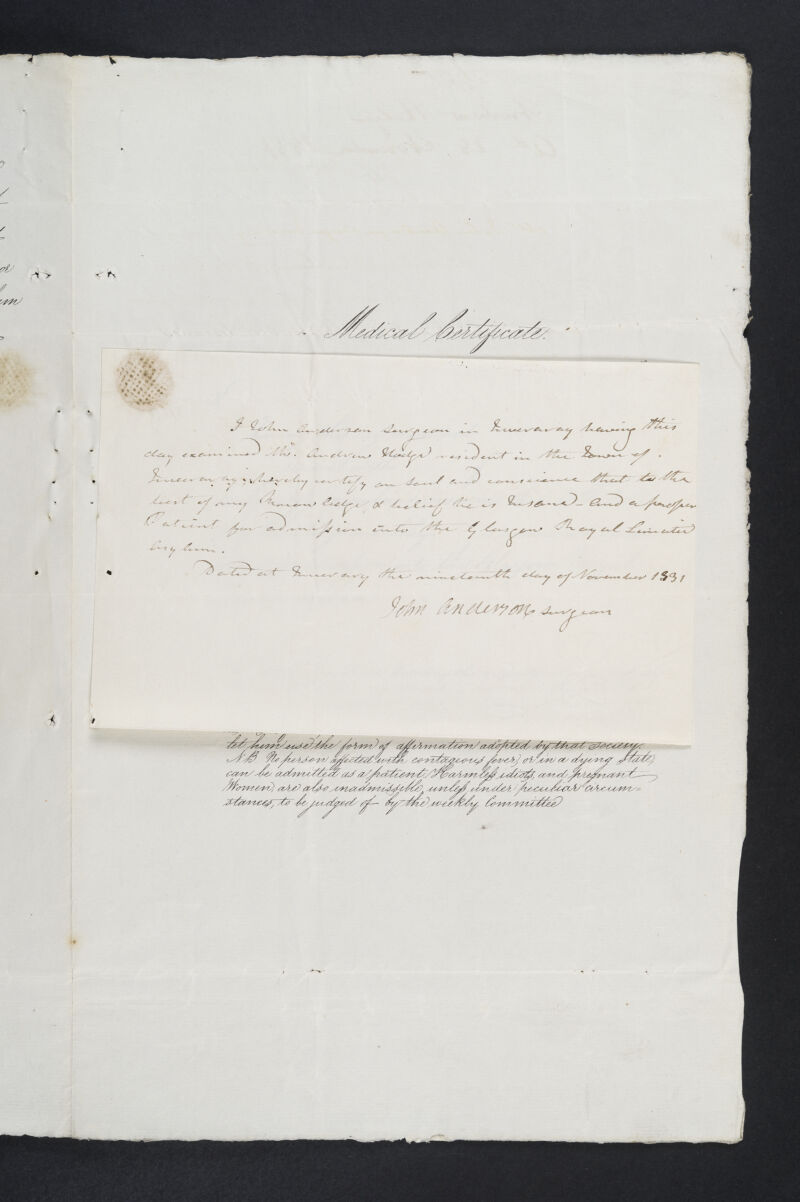 Medical Certificate.
I John Anderson Surgeon in Inveraray having this
day examined Mr. Andrew Hodge resident in the Town of
Inveraray; hereby certify on soul and conscience that to the
best of my knowledge & belief he is Insane - and a proper
Patient for admission into the Glasgow Royal Lunatic
Asylum.
Dated at Inverary the nineteenth day of November 1831
John Anderson Surgeon
let him use the form of affirmation adopted by that Society.
N.B. No person affected with contagious fever, or in a dying state,
can be admitted as a patient, Harmless idiots, and pregnant
Women, are also inadmissible, unless under peculiar circum-
stances, to be judged of by the weekly Committee